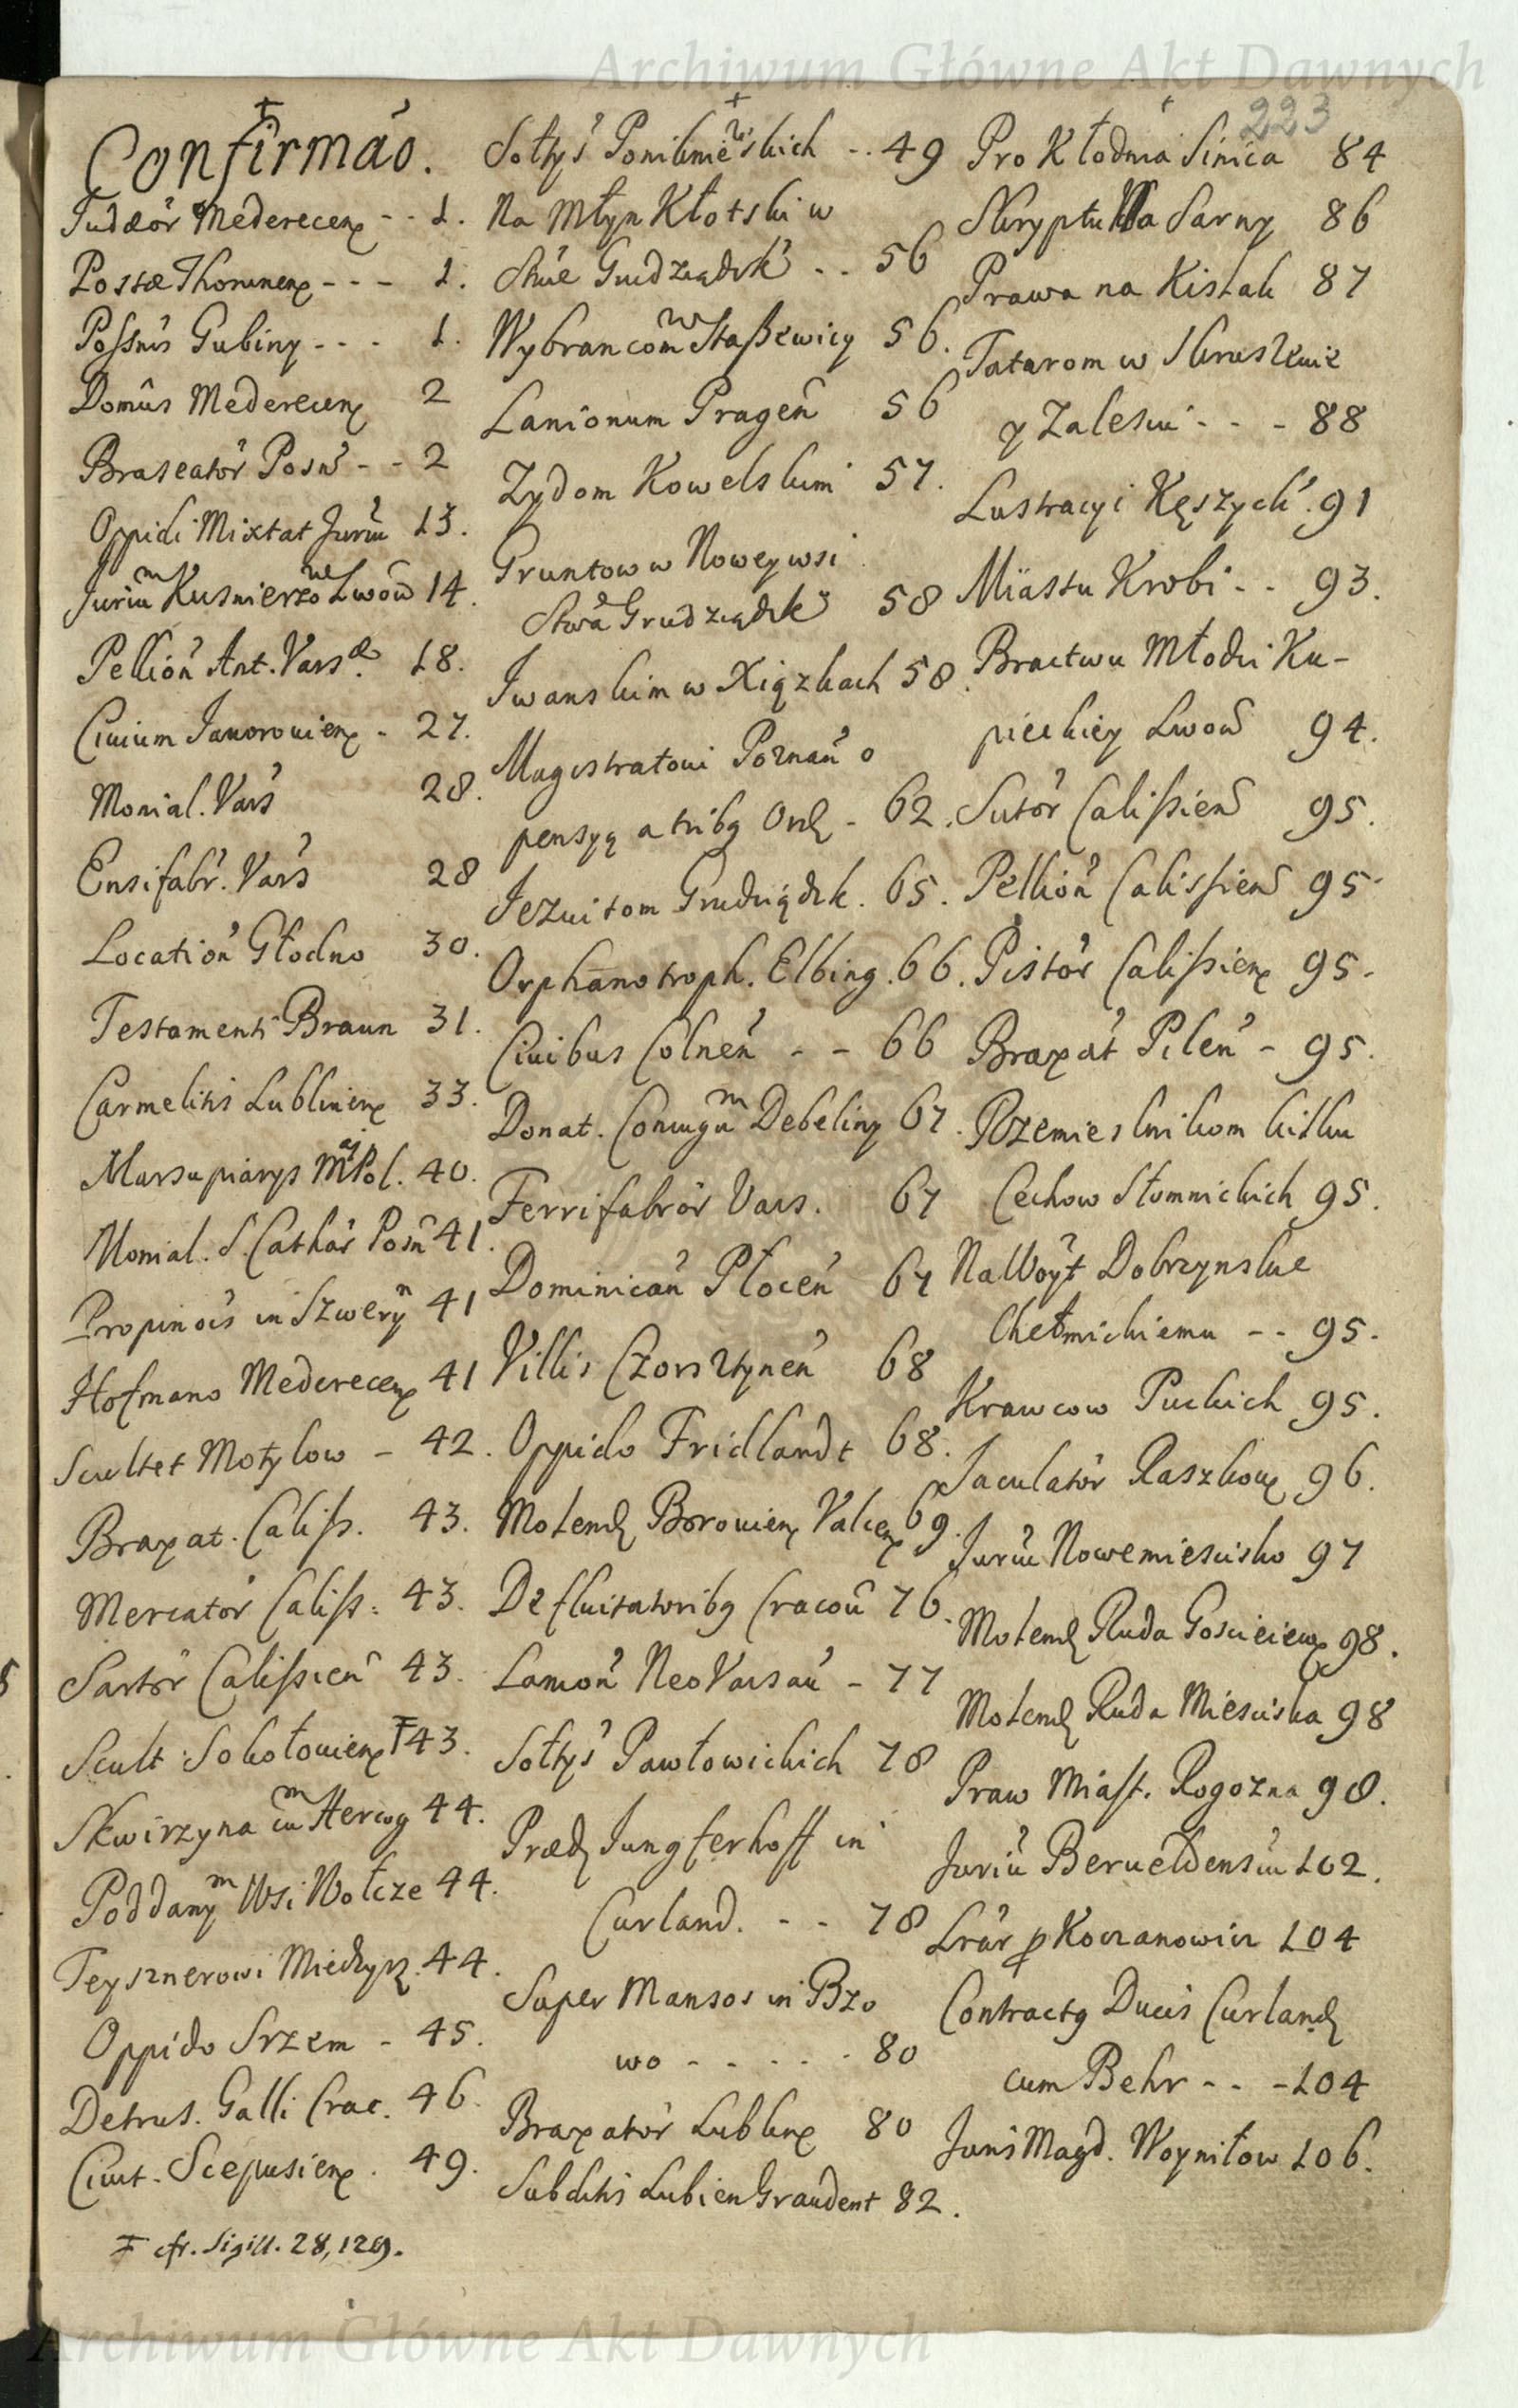 Archiwum Główne Akt Dawnych
223
Confirmáo.
Judæór Medereceng - - 1.
Postæ Thorunens - - - 1.
Possnis Gubiny - - - 1.
Domûs Medereceng 2
Braseatór Posń - - 2
Oppidi Mixtat Juriū 13.
Juriūm Kusnierzo we Lwow 14.
Pellioń Ant. Varsæ. 18.
Civium Janoroviens - 27.
Monial. Vars 28.
Ensifabr. Vars 28
Locatioń Głodno 30.
Testamenti Braun 31.
Carmelitis Lublinens 33.
Marsupiarys M. Pol. 40.
Monial. S. Cathar Posn 41.
Propinōis in Szweryn 41
Hofmano Medereceng 41
Scultet Motylow - 42.
Braxat. Caliss. 43.
Mercatór Caliss: 43.
Sartór Calissień 43.
Scult Sokołoviens Ŧ 43.
Skwirzyna cum Hercog 44.
Poddanym Wsi Wołcze 44.
Teysznerowi Miedzyrz. 44.
Oppido Srzem - 45.
Detrus. Galli Crac. 46.
Civit. Scepusiens. 49.
Ŧ cfr. Sigill. 28, 129.
Sołtys Ponikiewskich - - 49
Na Młyn Kłotski w
Stwie Grudziądzk - - 56
Wybrancom w Staszewicy 56.
Lanionum Prageń 56
Zydom Kowelskim 57.
Gruntow w Nowey wsi
Stwa Grudziądzk 58
Iwanskim w Xiązkach 58.
Magistratowi Poznań o
pensyą a tribg Ord - 62.
Jezuitom Grudziądzk. 65.
Orphanotroph. Elbing. 66.
Civibus Colneń - - 66
Donat. Coniugum Debeliny 67.
Ferrifabrór Vars. 67
Dominicań Płoceń 67
Villis Czorsztyneń 68
Oppido Fridlandt 68.
Molend Boroviens Valcens 69.
Defluitatoribg Cracoū 76.
Lanioń Neo Varsau - 77
Sołtys Pawłowickich 78
Præd Jungferhoff in
Curland. - - 78
Super Mansos in Bzo
wo - - - - - 80
Braxatór Lublins 80
Subditis Lubien Graudent 82.
Pro Kłodnia Sinica 84
Skryptu Na Sarny 86
Prawa na Kislak 87
Tatarom w Kruszenie
y Zalesiu - - - 88
Lustracyi Kęszych. 91
Miastu Krobi - - 93.
Bractwu Młodzi Ku-
pieckiey Lwow 94.
Sutór Calissień 95.
Pellioń Calissień 95.
Pistór Calissiens 95.
Braxat Pileń - 95.
Rzemieslnikom kilku
Cechow Słomnickich 95.
Na Woyt Dobrzynskie
Chełmickiemu - - 95.
Krawcow Puckich 95.
Jaculatór Raszkous 96.
Juriū Nowemiescisko 97
Molend Ruda Goscieiews 98.
Molend Ruda Miesciska 98
Praw Miast. Rogozna 98.
Juriū Berueldensiū 102.
Lrár p Koczanowicz 104
Contractg Ducis Curland
cum Behr - - - 104
Juris Magd. Woyniłow 106.
Archiwum Główne Akt Dawnych